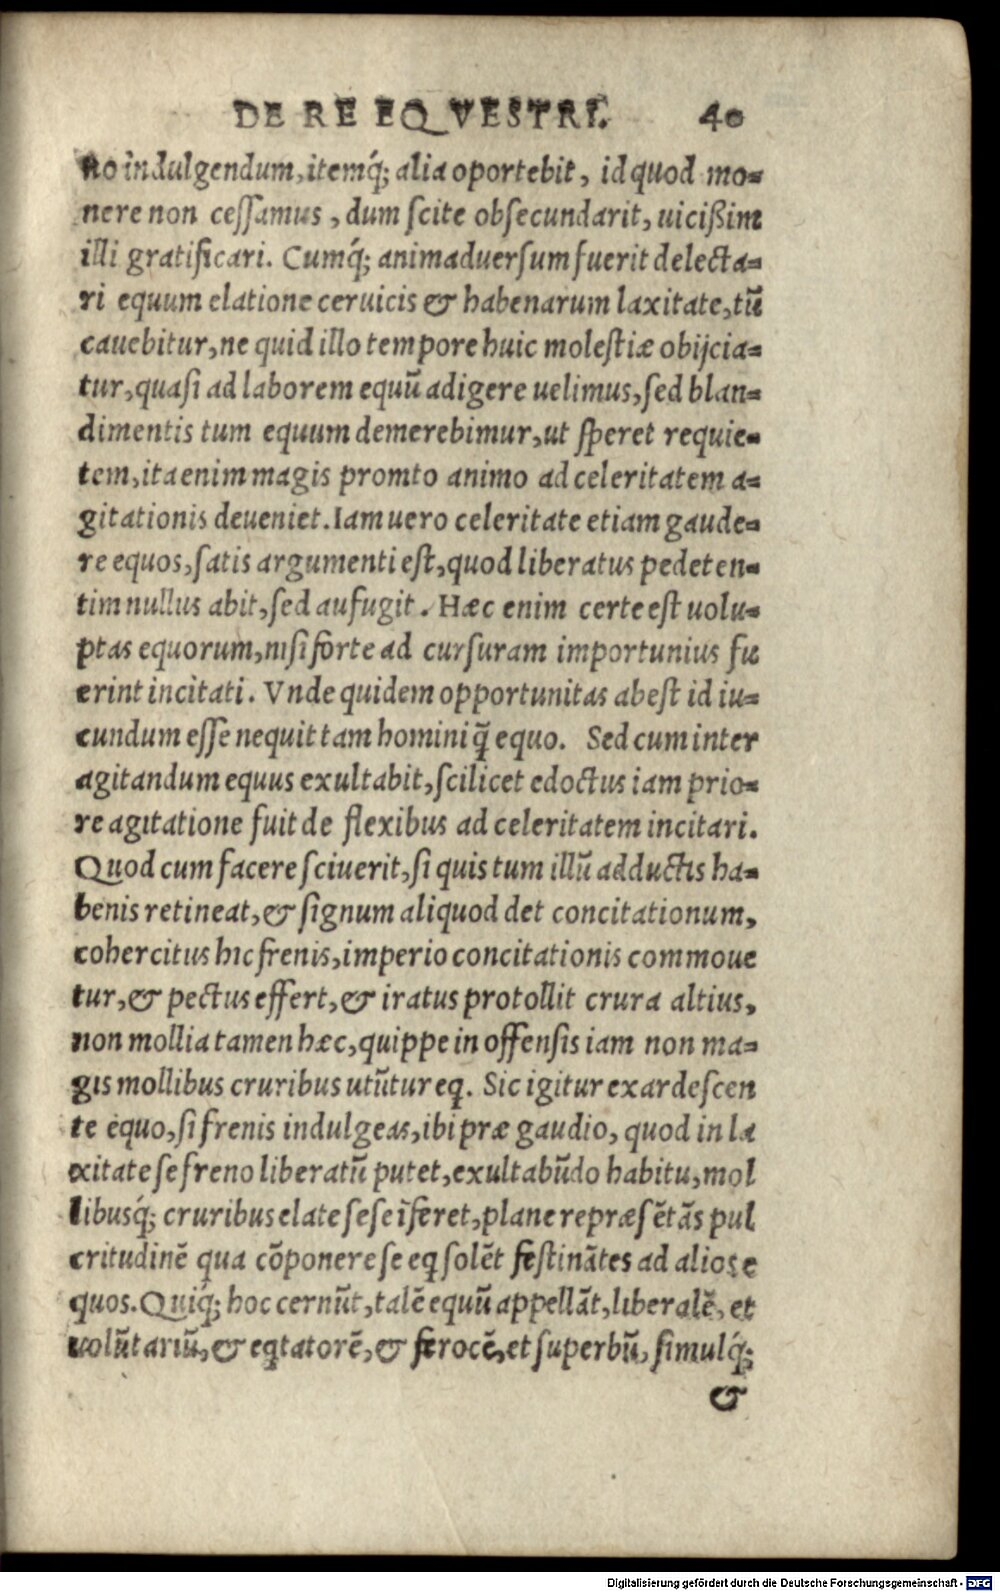 DE RE EQVESTRI. 40
no indulgendum, itemq́; alia oportebit, id quod mo=
nere non cessamus, dum scite obsecundarit, uicißim
illi gratificari. Cumq́; animaduersum fuerit delecta=
ri equum elatione ceruicis & habenarum laxitate, tū
cauebitur, ne quid illo tempore huic molestiæ obijcia=
tur, quasi ad laborem equū adigere uelimus, sed blan=
dimentis tum equum demerebimur, ut speret requie=
tem, ita enim magis promto animo ad celeritatem a=
gitationis deueniet. Iam uero celeritate etiam gaude=
re equos, satis argumenti est, quod liberatus pedeten=
tim nullus abit, sed aufugit. Hæc enim certe est uolu=
ptas equorum, nisi forte ad cursuram importunius fu
erint incitati. Vnde quidem opportunitas abest id iu=
cundum esse nequit tam homini q̃ equo. Sed cum inter
agitandum equus exultabit, scilicet edoctus iam prio=
re agitatione fuit de flexibus ad celeritatem incitari.
Quod cum facere sciuerit, si quis tum illū adductis ha=
benis retineat, & signum aliquod det concitationum,
cohercitus hic frenis, imperio concitationis commoue
tur, & pectus effert, & iratus protollit crura altius,
non mollia tamen hæc, quippe in offensis iam non ma=
gis mollibus cruribus utūtur eq. Sic igitur exardescen
te equo, si frenis indulgeas, ibi præ gaudio, quod in la
xitate se freno liberatū putet, exultabūdo habitu, mol
libusq́; cruribus elate sese īferet, plane repræsētãs pul
critudinē qua cōponere se eq solēt festinãtes ad alios e
quos. Quiq́; hoc cernūt, talē equū appellãt, liberalē, et
uolūtariū, & eqtatorē, & ferocē, et superbū, simulq́;
&
Digitalisierung gefördert durch die Deutsche Forschungsgemeinschaft - DFG